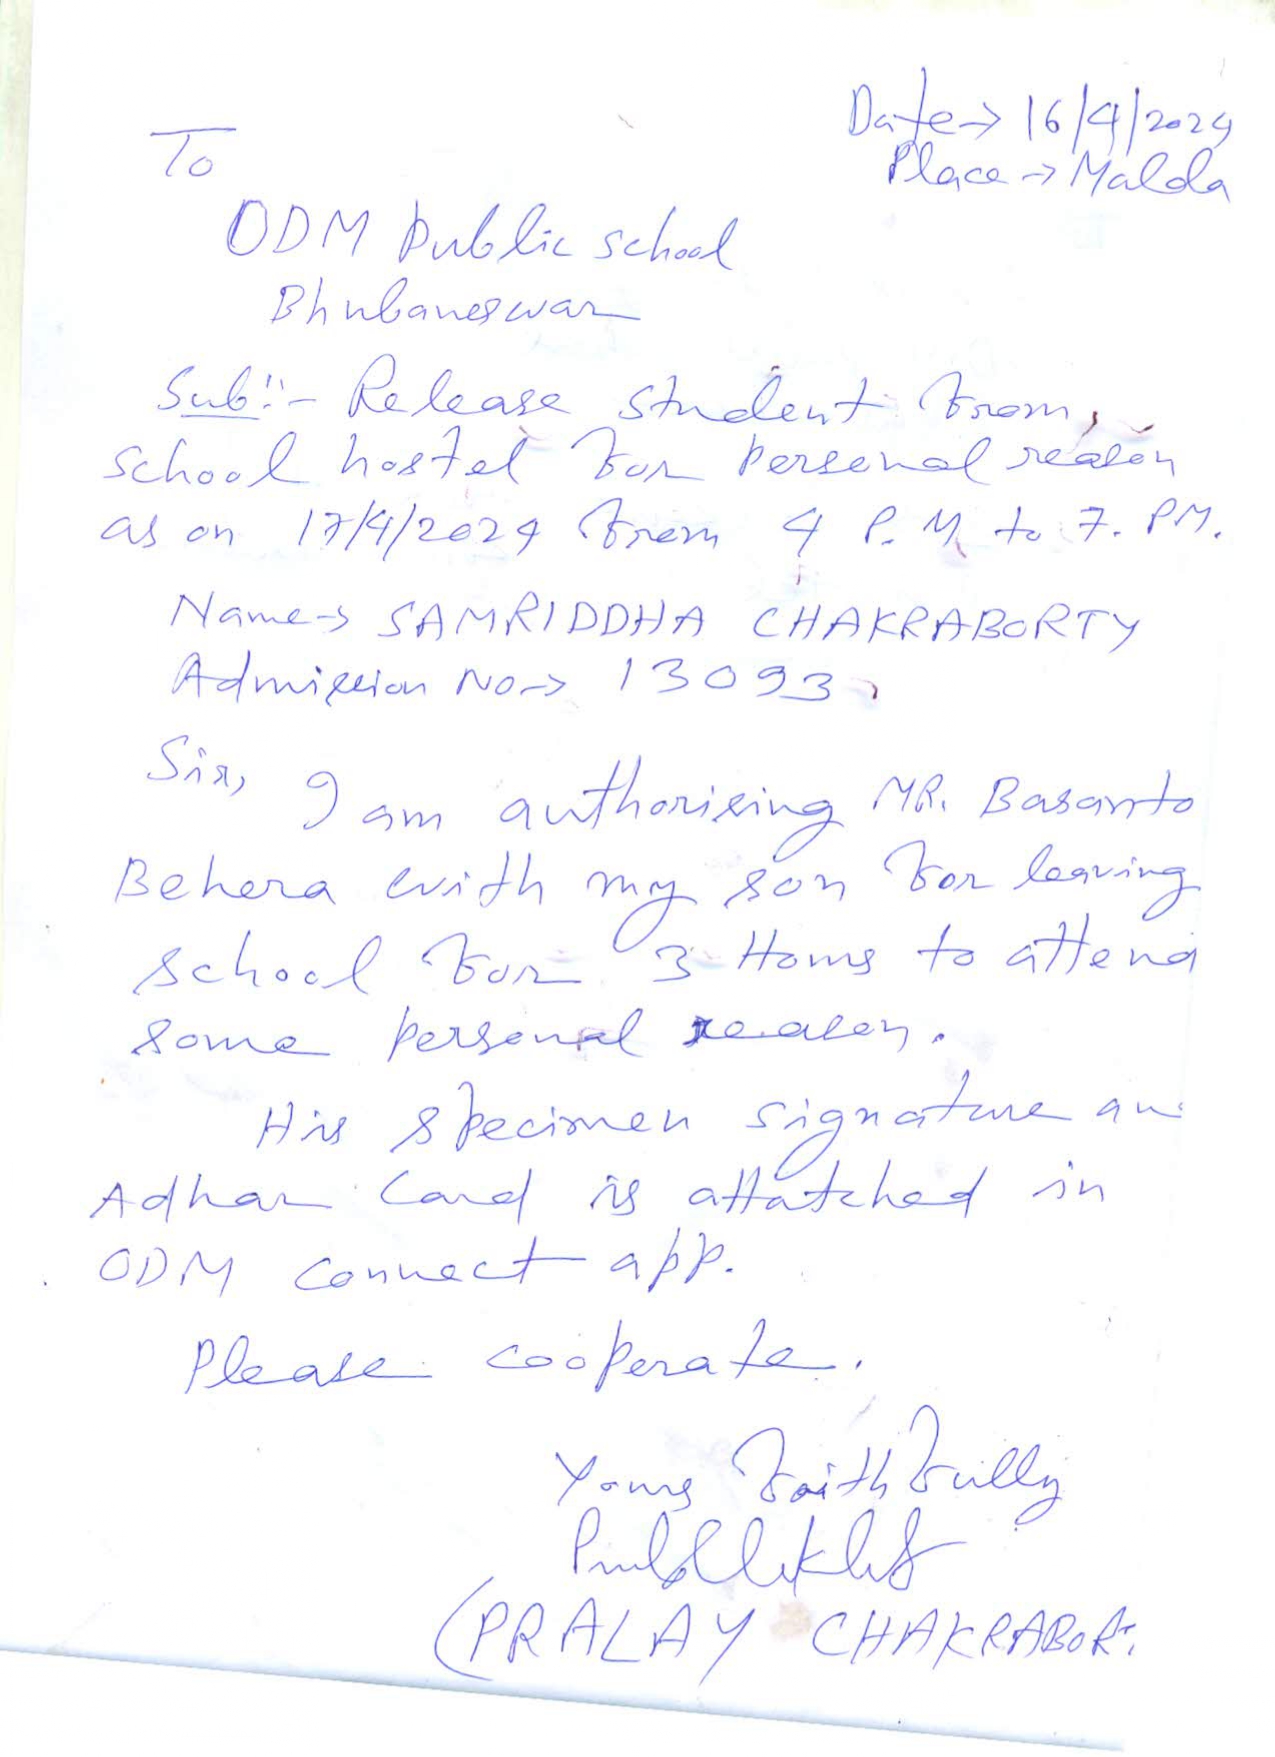 Date→ 16/4/2024
Place→ Malda
To
ODM Public school
Bhubaneswar
Sub:- Release student from
school hostel for personal reason
as on 17/4/2024 from 4 P.M to 7. PM.
Name→ SAMRIDDHA CHAKRABORTY
Admission No→ 13093
Sir,
I am authorising MR. Basanto
Behera with my son for leaving
school for 3 Hours to attend
some personal reason.
His specimen signature an
Adhar Card is attatched in
ODM Connect app.
Please cooperate.
Yours faithfully
(PRALAY CHAKRABOR